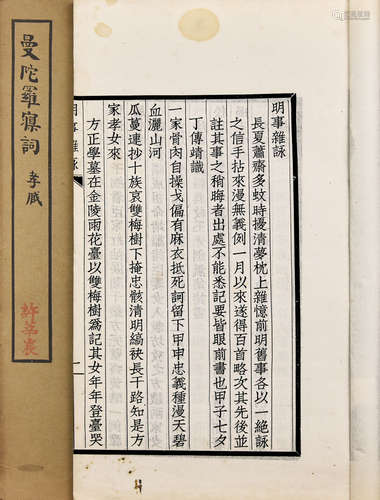 曼陀羅寱詞
孝臧
明事雜詠
長夏蕭齋多蚊時擾清夢枕上雜憶前明舊事各以一絕詠
之信手拈來漫無義例一月以來遂得百首略次其先後並
註其事之稍晦者出處不能悉記要皆眼前書也甲子七夕
丁傳靖識
一家骨肉自操戈偏有麻衣抵死訶留下甲申忠義種漫天碧
血灑山河
瓜蔓連抄十族哀雙梅樹下掩忠骸清明縞袂長干路知是方
家孝女來
方正學墓在金陵雨花臺以雙梅樹爲記其女年年登臺哭
明事雜詠
一